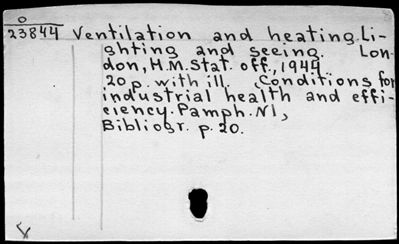 0
23844 Ventilation and heating. Li-
ghting and seeing. Lon-
don, H.M. Stat. off., 1944.
20 p. with ill. (Conditions for
industrial health and effi-
ciency. Pamph. N1,
Bibliogr. p. 20.